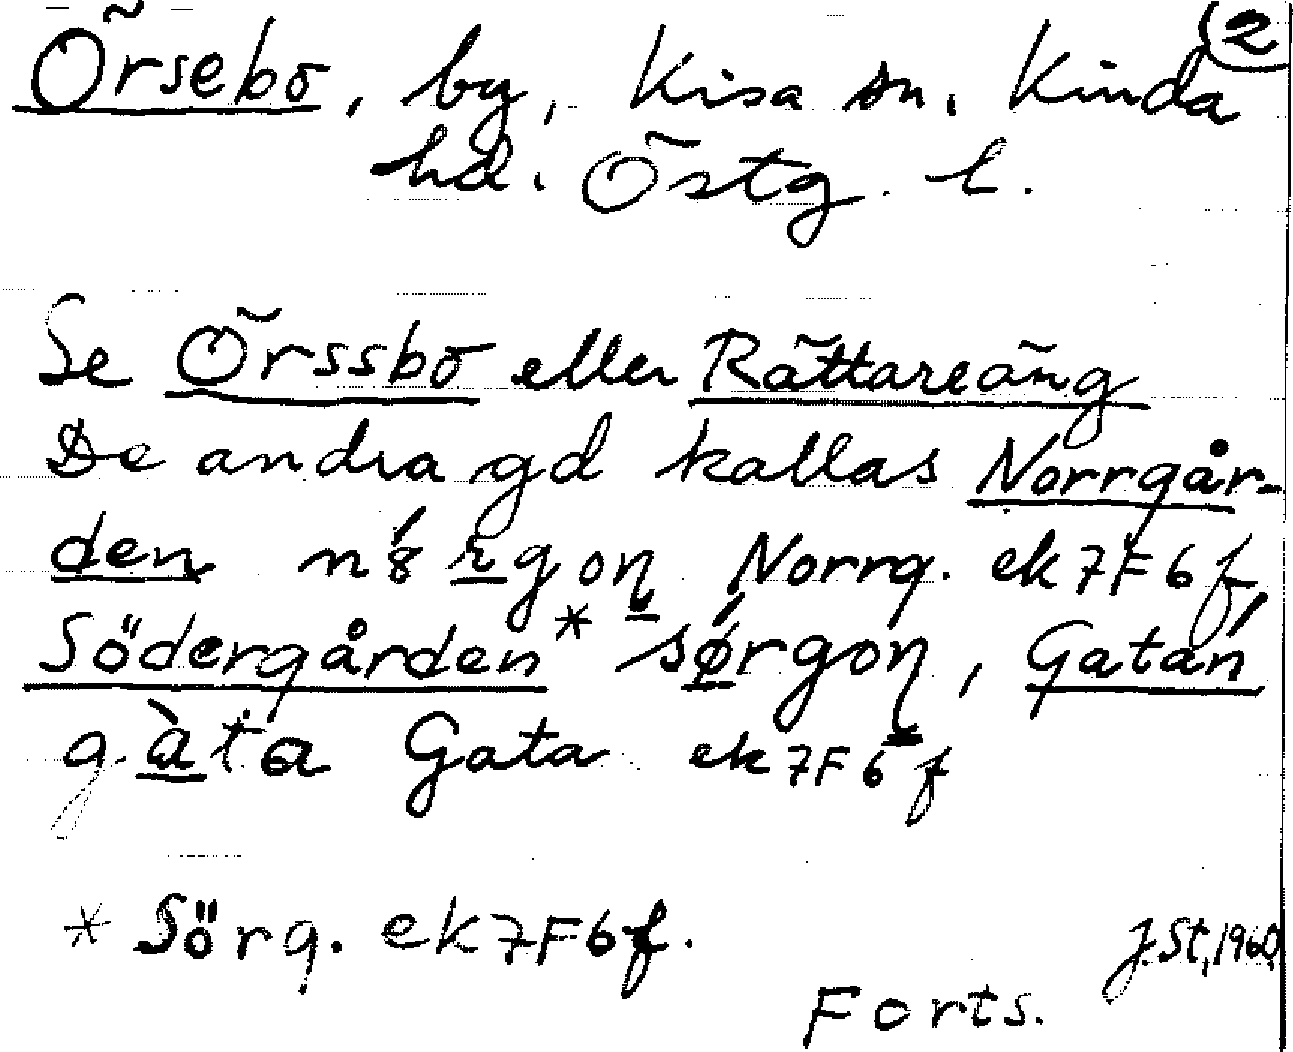 2
Örsebo, by, Kisa sn. Kinda
hd. Östg. l.
Se Örssbo eller Rättareäng
De andra gd kallas Norrgår-
den Norrg. ek 7F6f,
Södergården* sørgoɳ, Gatan
gàta Gata ek 7F6f
* Sörg. ek 7F6f.
J.St, 1960
Forts.